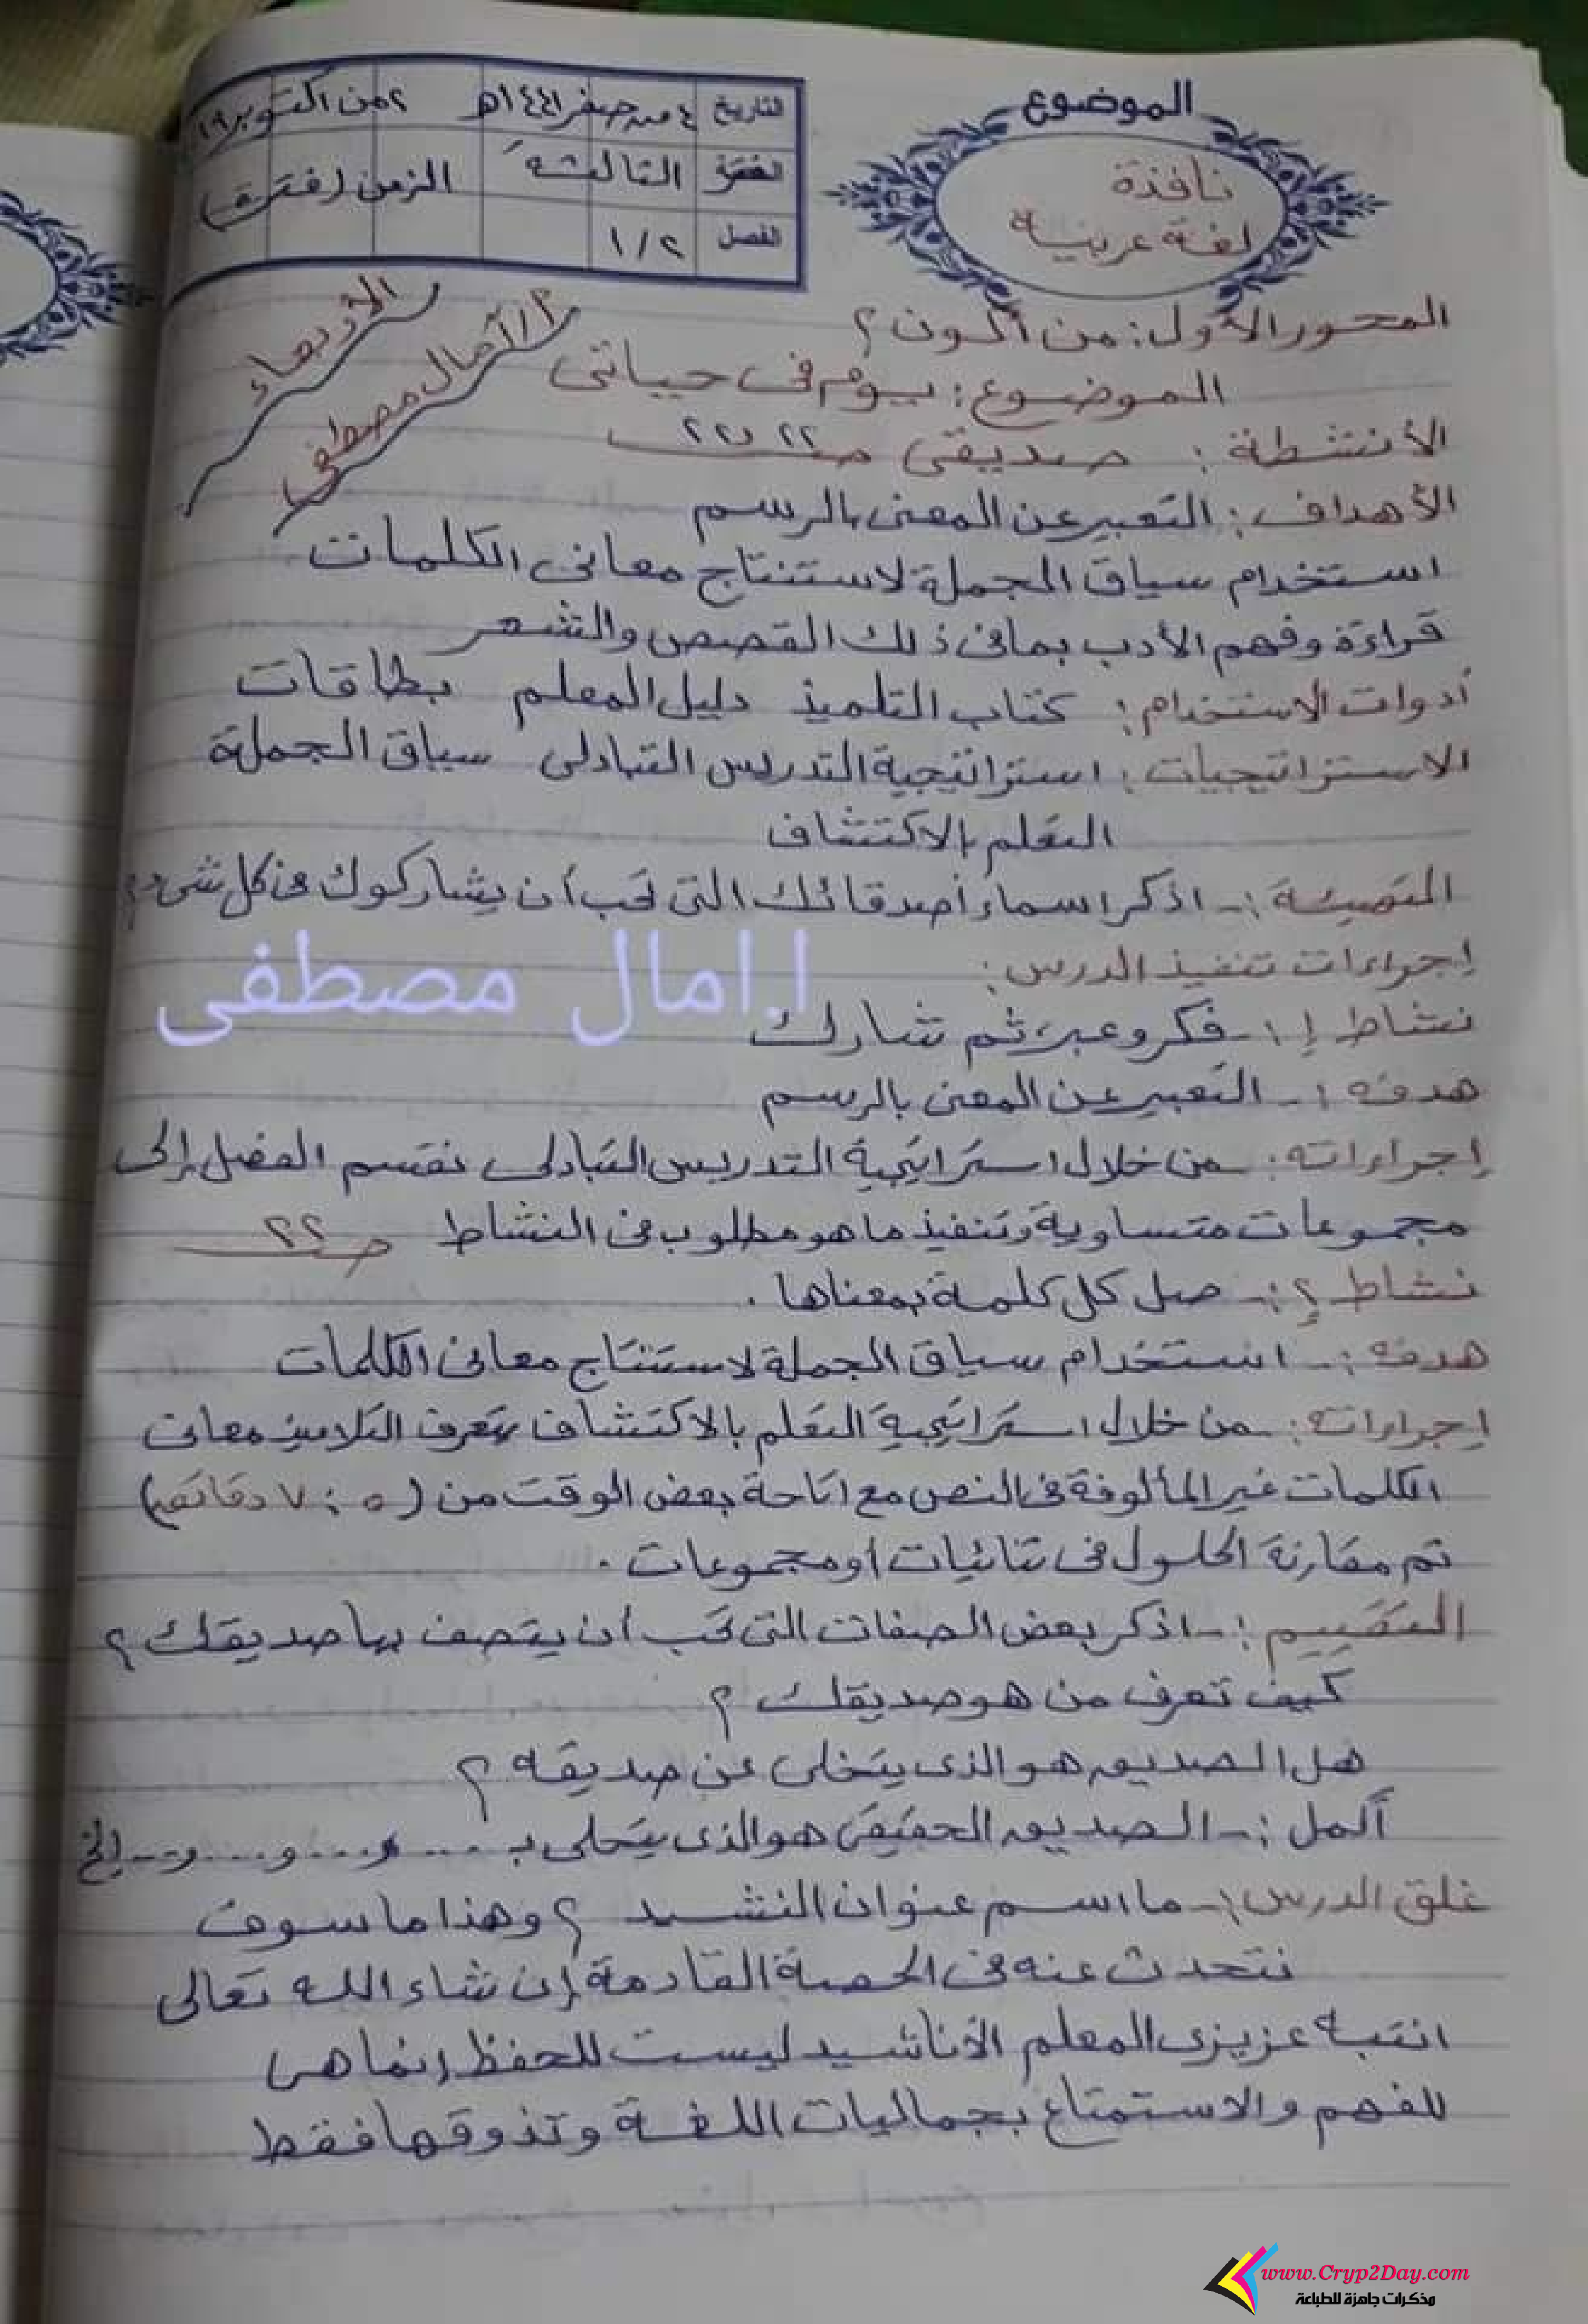 الموضوع
نافذة
لغة عربية
التاريخ ٤ من صفر ١٤٤١هـ ٢ من اكتوبر ١٩
الفترة الثالثة الزمن (فترة)
الفصل ١/٢
الأربعاء
أ/ آمال مصطفى
المحور الأول: من أكون؟
الموضوع: يوم فى حياتى
الأنشطة: صديقى صـ ٢٢
الأهداف: التعبير عن المعنى بالرسم
استخدام سياق الجملة لاستنتاج معانى الكلمات
قراءة وفهم الأدب بما فى ذلك القصص والشعر
أدوات الاستخدام: كتاب التلميذ دليل المعلم بطاقات
الاستراتيجيات: استراتيجية التدريس التبادلى سياق الجملة
التعلم بالاكتشاف
التهيئة :- اذكر اسماء أصدقائك التى تحب أن يشاركوك فى كل شىء؟
إجراءات تنفيذ الدرس:
ا.امال مصطفى
نشاط ١ :- فكر وعبر ثم شارك
هدفه :- التعبير عن المعنى بالرسم
إجراءاته :- من خلال استراتيجية التدريس التبادلى نقسم الفصل إلى
مجموعات متساوية وتنفيذ ما هو مطلوب فى النشاط صـ ٢٢
نشاط ٢ :- صل كل كلمة بمعناها .
هدفه :- استخدام سياق الجملة لاستنتاج معانى الكلمات
إجراءاته :- من خلال استراتيجية التعلم بالاكتشاف يتعرف التلاميذ معانى
الكلمات غير المألوفة فى النص مع اتاحة بعض الوقت من (٥ : ٧ دقائق)
ثم مقارنة الحلول فى ثنائيات أو مجموعات .
التقييم :- اذكر بعض الصفات التى تحب أن يتصف بها صديقك ؟
كيف تعرف من هو صديقك ؟
هل الصديق هو الذى يتخلى عن صديقه ؟
أكمل :- الصديق الحقيقى هو الذى يتحلى بـ .... و .... و .... و -- إلخ
غلق الدرس :- ما اسم عنوان النشيد ؟ وهذا ما سوف
نتحدث عنه فى الحصة القادمة إن شاء الله تعالى
انتبه عزيزى المعلم الأناشيد ليست للحفظ إنما هى
للفهم والاستمتاع بجماليات اللغة وتذوقها فقط
www.Cryp2Day.com
مذكرات جاهزة للطباعة